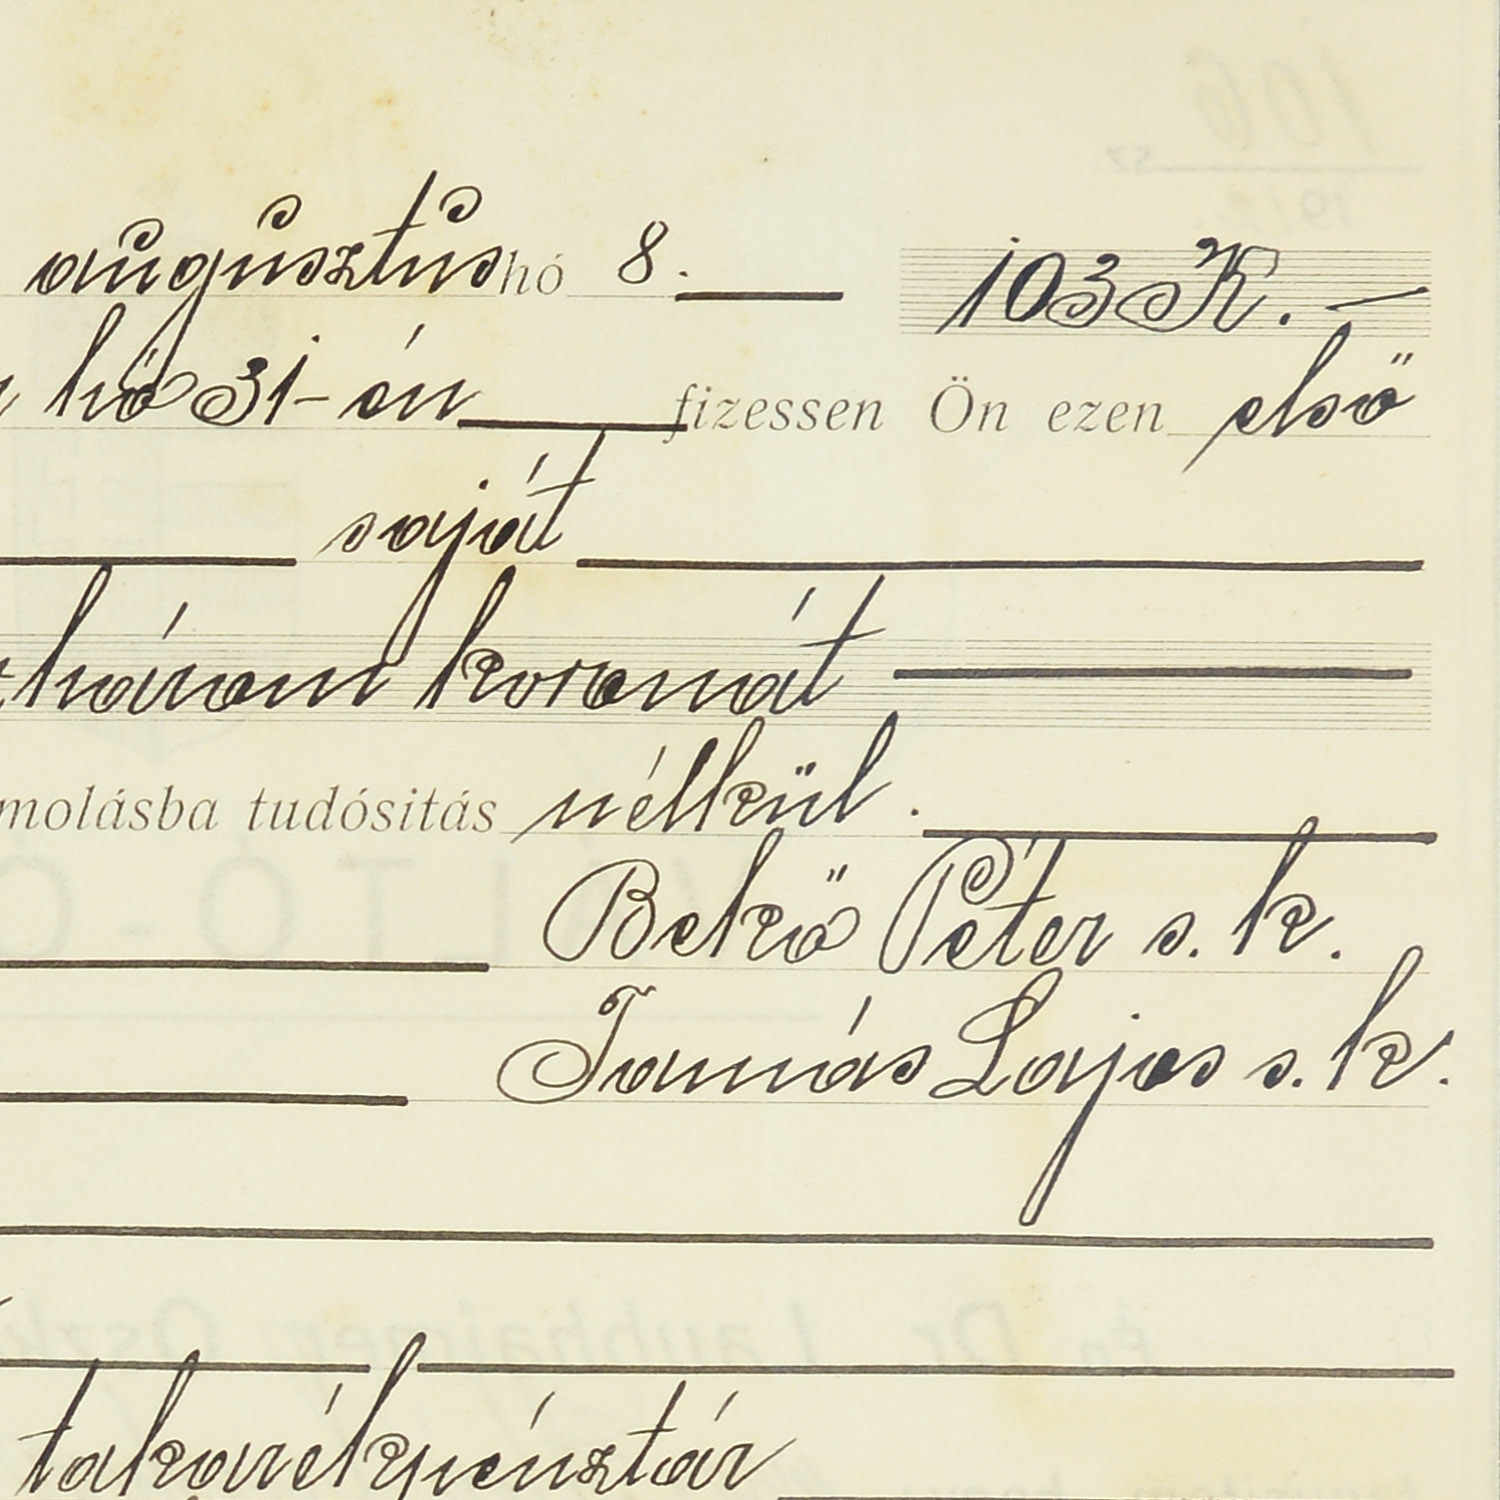 augusztus hó 8. 103 K. —
hó 31-én fizessen Ön ezen első
saját
három koronát
molásba tudósitás nélkül.
Bekő Péter s. k.
Tamás Lajos s. k.
takarékpénztár